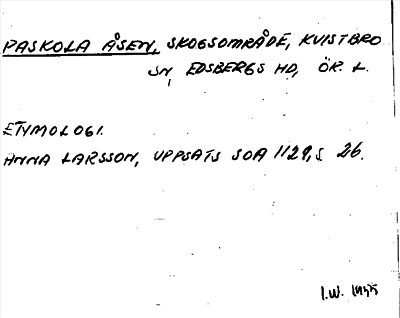 PASKOLA ÅSEN, SKOGSOMRÅDE, KVISTBRO
SN, EDSBERGS HD, ÖR. L.
ETYMOLOGI.
ANNA LARSSON, UPPSATS SOA 1129, S 26.
I.W.